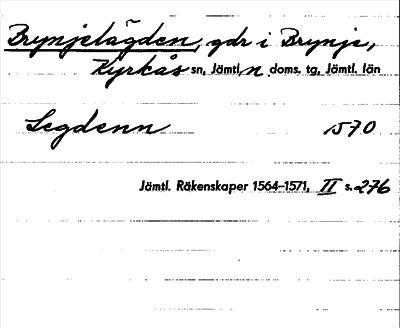 Brynjelägden, gdr i Brynje,
Kyrkås sn, Jämtl. n doms. tg, Jämtl. län
Legdenn 1570
Jämtl. Räkenskaper 1564–1571, II s. 276